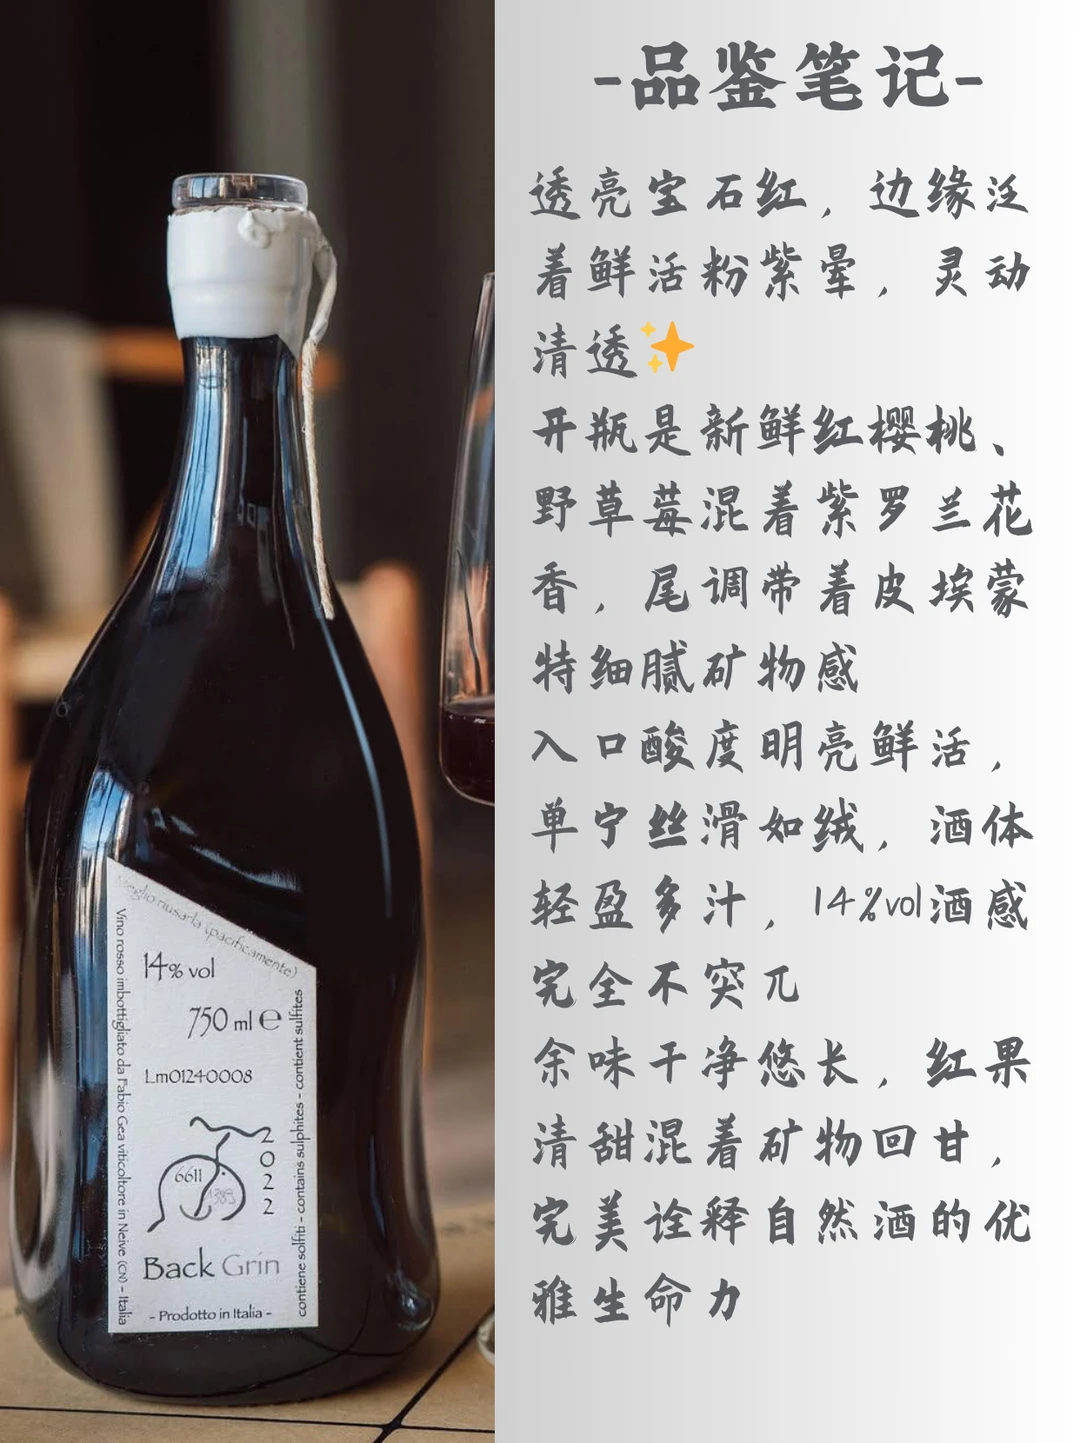 -品鉴笔记-
透亮宝石红，边缘泛
着鲜活粉紫晕，灵动
清透✨
开瓶是新鲜红樱桃、
野草莓混着紫罗兰花
香，尾调带着皮埃蒙
特细腻矿物感
入口酸度明亮鲜活，
单宁丝滑如绒，酒体
轻盈多汁，14%vol酒感
完全不突兀
余味干净悠长，红果
清甜混着矿物回甘，
完美诠释自然酒的优
雅生命力
meglio riusarla (pacificamente)
Vino rosso imbottigliato da Fabio Gea viticoltore in Neive (CN) - Italia
14% vol
750 ml e
Lm0124-0008
6611
1389
2022
Back Grin
- Prodotto in Italia -
contiene solfiti - contains sulphites - contient sulfites